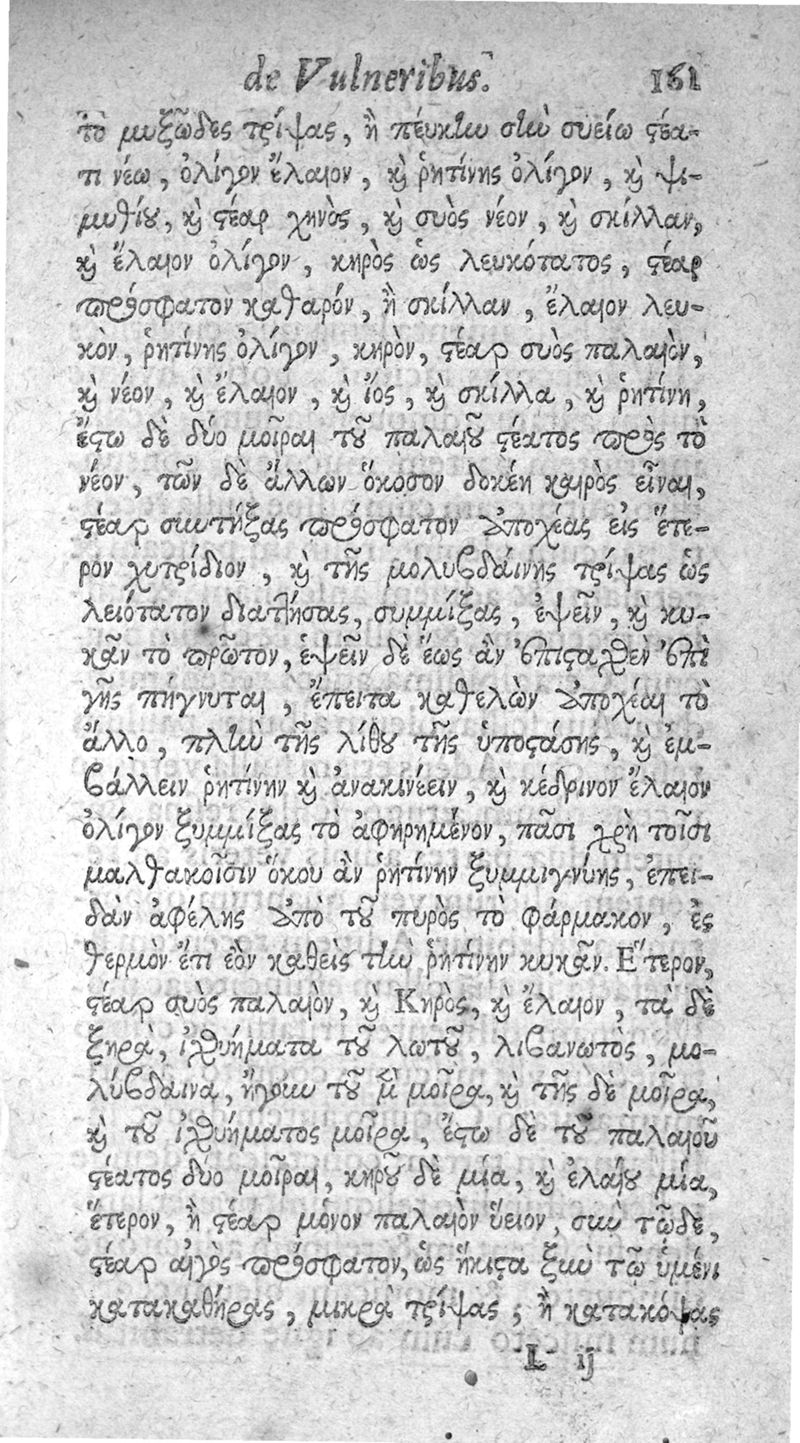 de Vulneribus. 161
τὸ μυξῶδες τρίψας, ἢ πέυκίω σιω συείω ϛέα-
τι νέω, ὀλίγον ἔλαιον, ϗ ῥητίνης ὀλίγον, ϗ ψι-
μυθίȣ, ϗ ϛέαρ χηνὸς, ϗ συὸς νέον, ϗ σκίλλαν,
ϗ ἔλαιον ὀλίγον, κηρὸς ὡς λευκότατος, ϛέαρ
πρόσφατον καθαρόν, ἢ σκίλλαν, ἔλαιον λευ-
κὸν, ῥητίνης ὀλίγον, κηρὸν, ϛέαρ συὸς παλαιὸν,
ϗ νέον, ϗ ἔλαιον, ϗ ἴος, ϗ σκίλλα, ϗ ῥητίνη,
ἔϛω δὲ δύο μοῖραι τȣ͂ παλαιȣ͂ ϛέατος πρὸς τὸ
νέον, τῶν δὲ ἄλλων ὅκοσον δοκέη καιρὸς εἶναι,
ϛέαρ συντήξας πρόσφατον ἀποχέας εἰς ἕτε-
ρον χυτρίδιον, ϗ τῆς μολυβδάινης τρίψας ὡς
λειότατον διατλήσας, συμμίξας, ἑψεῖν, ϗ κυ-
κᾶν τὸ πρῶτον, ἑψεῖν δὲ ἕως ἂν ἐπιϛαχθὲν ἐπὶ
γῆς πήγνυται, ἔπειτα καθελὼν ἀποχέαι τὸ
ἄλλο, πλὴν τῆς λίθȣ τῆς ὑποϛάσης, ϗ ἐμ-
βάλλειν ῥητίνην ϗ ἀνακινέειν, ϗ κέδρινον ἔλαιον
ὀλίγον ξυμμίξας τὸ ἀφηρημένον, πᾶσι χρὴ τοῖσι
μαλθακοῖσιν ὅκου ἂν ῥητίνην ξυμμιγνύης, ἐπει-
δὰν ἀφέλης ἀπὸ τȣ͂ πυρὸς τὸ φάρμακον, ἐς
θερμὸν ἔτι ἐὸν καθεὶς τὴν ῥητίνην κυκᾶν. Ἕτερον,
ϛέαρ συὸς παλαιὸν, ϗ Κηρὸς, ϗ ἔλαιον, τὰ δὲ
ξηρὰ, ἰχθυήματα τȣ͂ λωτȣ͂, λιβανωτὸς, μο-
λύβδαινα, ἤγουν τȣ͂ μ̀ μοῖρα, ϗ τῆς δὲ μοῖρα,
ϗ τȣ͂ ἰχθυήματος μοῖρα, ἔϛω δὲ τȣ͂ παλαιοῦ
ϛέατος δύο μοῖραι, κηρȣ͂ δὲ μία, ϗ ἐλαίȣ μία,
ἕτερον, ἢ ϛέαρ μόνον παλαιὸν ὕειον, σὺν τῶδε,
ϛέαρ αἰγὸς πρόσφατον, ὡς ἥκιϛα ξὺν τῷ ὑμένι
κατακαθήρας, μικρὰ τρίψας, ἢ κατακόψας
L ij